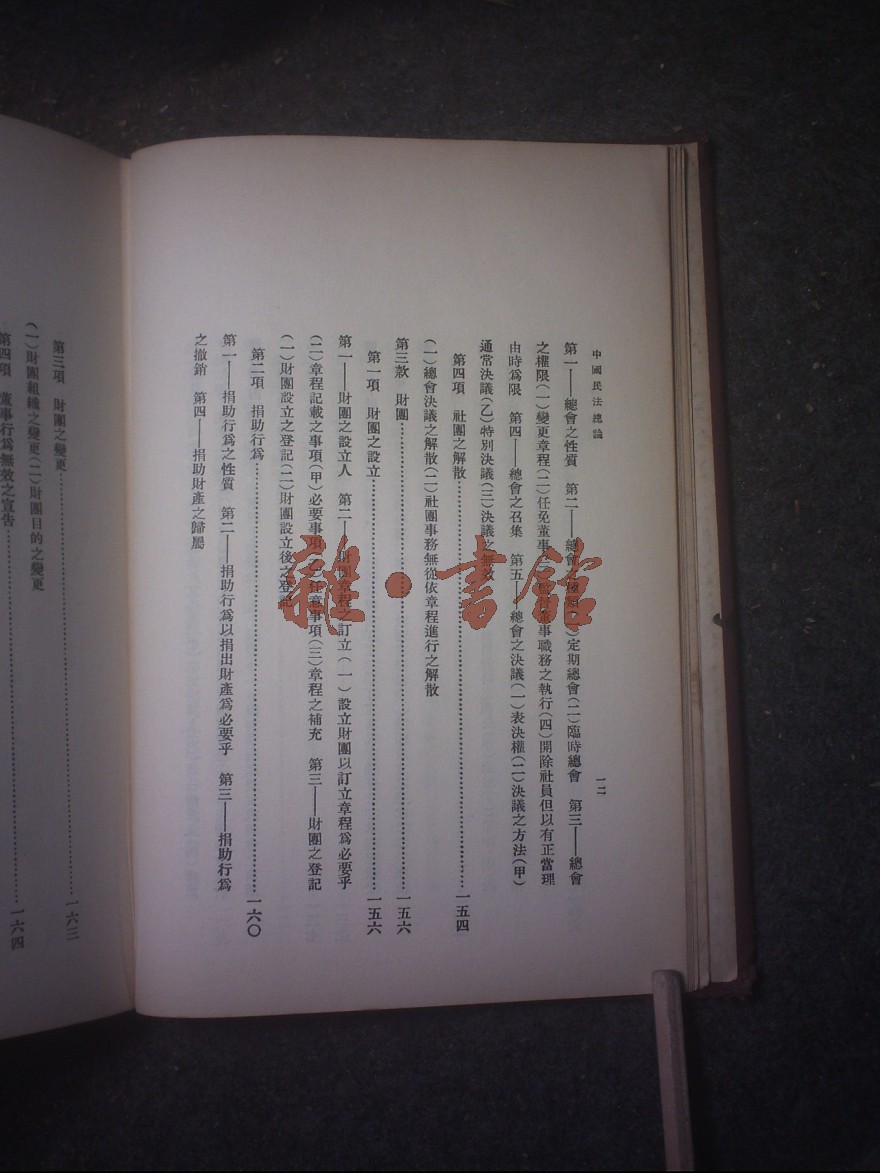 中國民法總論
一二
第一——總會之性質　第二——總會之種類(一)定期總會(二)臨時總會　第三——總會
之權限(一)變更章程(二)任免董事(三)監督董事職務之執行(四)開除社員但以有正當理
由時爲限　第四——總會之召集　第五——總會之決議(一)表決權(二)決議之方法(甲)
通常決議(乙)特別決議(三)決議之無效
第四項　社團之解散…………一五四
(一)總會決議之解散(二)社團事務無從依章程進行之解散
第三款　財團…………一五六
第一項　財團之設立…………一五六
第一——財團之設立人　第二——財團章程之訂立(一)設立財團以訂立章程爲必要乎
(二)章程記載之事項(甲)必要事項(乙)任意事項(三)章程之補充　第三——財團之登記
(一)財團設立之登記(二)財團設立後之登記
第二項　捐助行爲…………一六〇
第一——捐助行爲之性質　第二——捐助行爲以捐出財產爲必要乎　第三——捐助行爲
之撤銷　第四——捐助財產之歸屬
第三項　財團之變更…………一六三
(一)財團組織之變更(二)財團目的之變更
第四項　董事行爲無效之宣告…………一六四
雜·書館